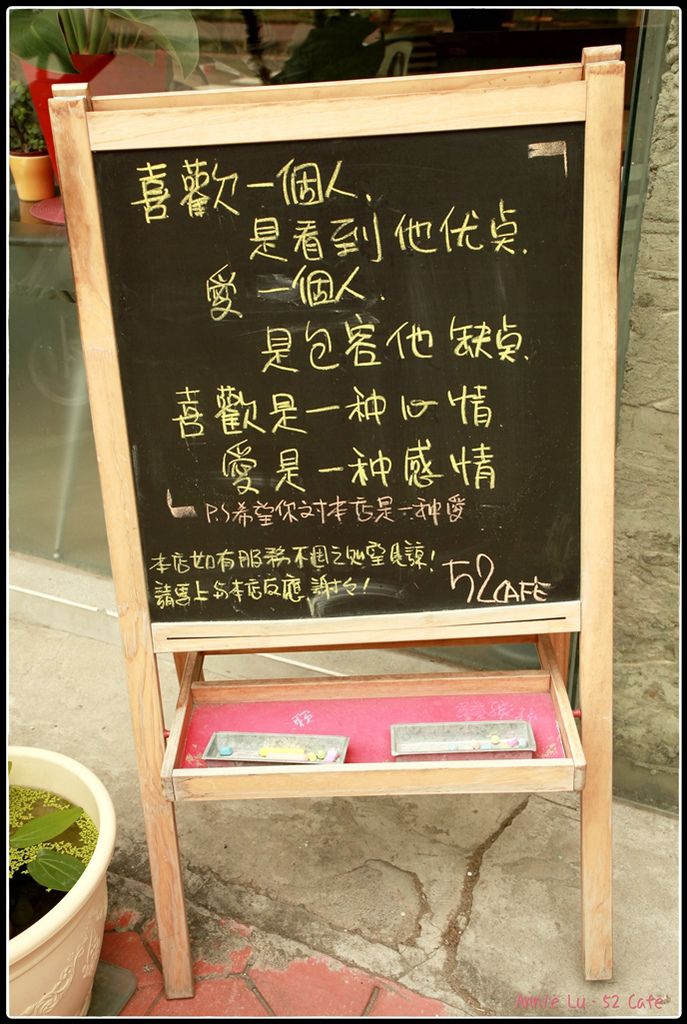 喜歡一個人.
是看到他优点.
愛一個人.
是包容他缺点.
喜歡是一种心情
愛是一种感情
P.S希望你对本店是一种愛
本店如有服務不週之処望見諒!
請馬上与本店反應,謝々!
52 CAFE
Annie Lu · 52 Cafe